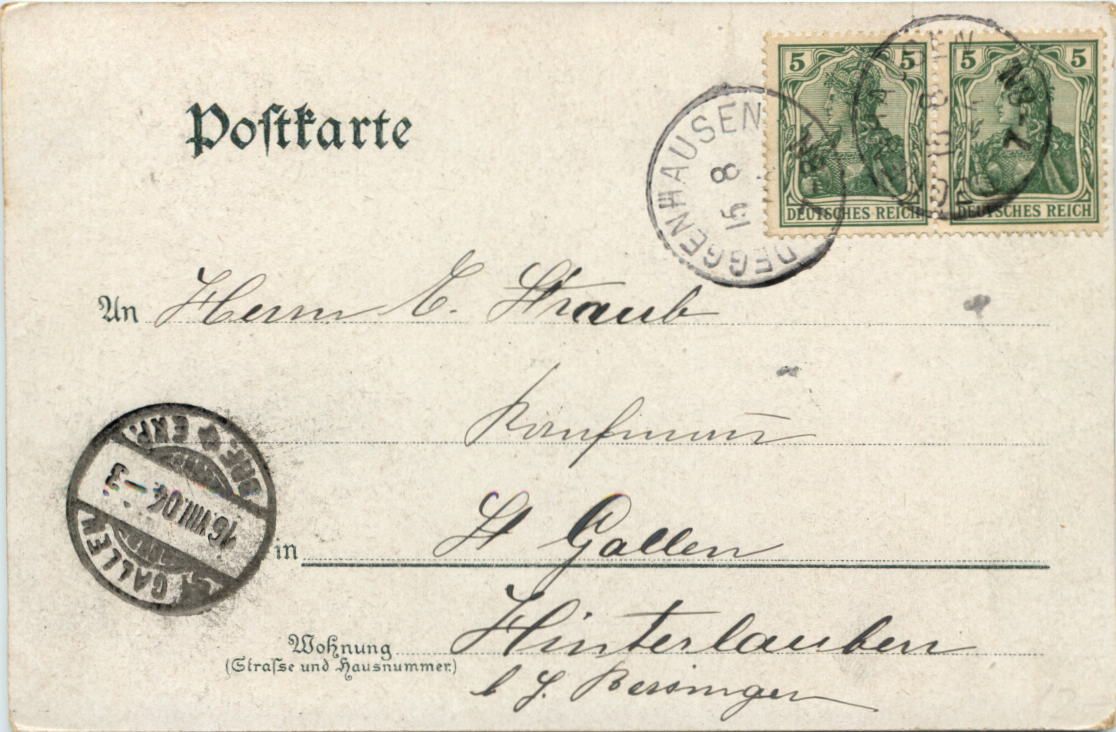 Postkarte
5 5 5 5
DEUTSCHES REICH DEUTSCHES REICH
DEGGENHAUSEN
15 8
7-8N
An Herrn E. Straub
Kaufmann
ST. GALLEN
BRF. EXP.
16.VIII.04.-3
in St Gallen
Wohnung Hinterlauben
(Strasse und Hausnummer)
b J. Bersinger